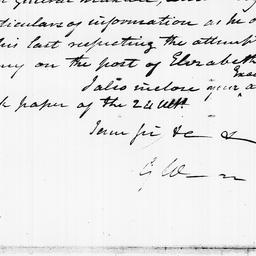 particulars of information as he
his last respecting the attempt
on the post of Elizabeth
I also inclose your
paper of the 24 ulto.
I am Sir &c &
G W